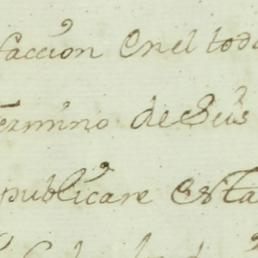 faccion en el todo
termino de sus
publicare esta